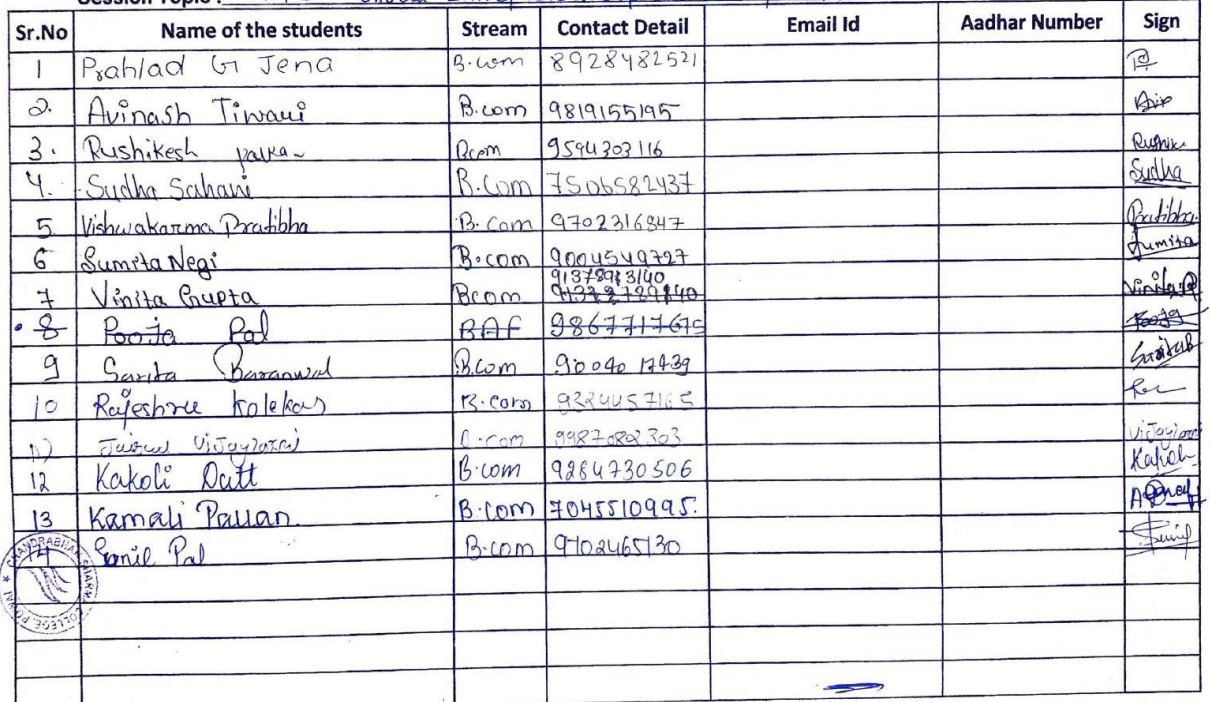 Session Topic :
Sr.No Name of the students Stream Contact Detail Email Id Aadhar Number Sign
1 Prahlad G Jena B.com 8928482521
2. Avinash Tiwari B.com 9819155195
3. Rushikesh Bcom 9594303116
4. Sudha Sahani B.Com 7506582437 Sudha
5 Vishwakarma Pratibha B.Com 9702316847 Pratibha
6 Sumita Negi B.com 9004549727 Sumita
7 Vinita Gupta Bcom
8 Pooja Pal BAF 9867717675 Pooja
9 Sarita Baranwal B.com 9004017439
10 Rajeshree Kolekar B.com 9324457165
11) 9987082303
12 Kakoli Datt B.com 9284730506 Kakoli
13 Kamali Pallan. B.com 7045510995.
14 Sunil Pal B.com 9702465130 Sunil